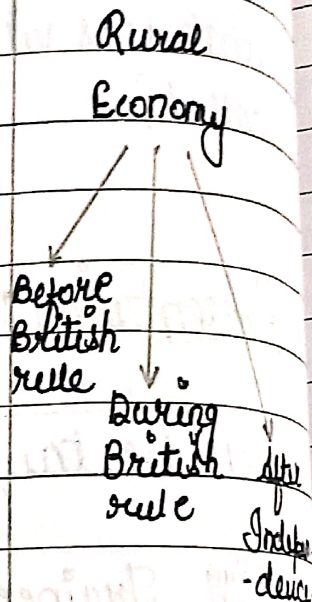 Rural
Economy
Before
British
rule
During
British
rule
After
Indepen
-dence